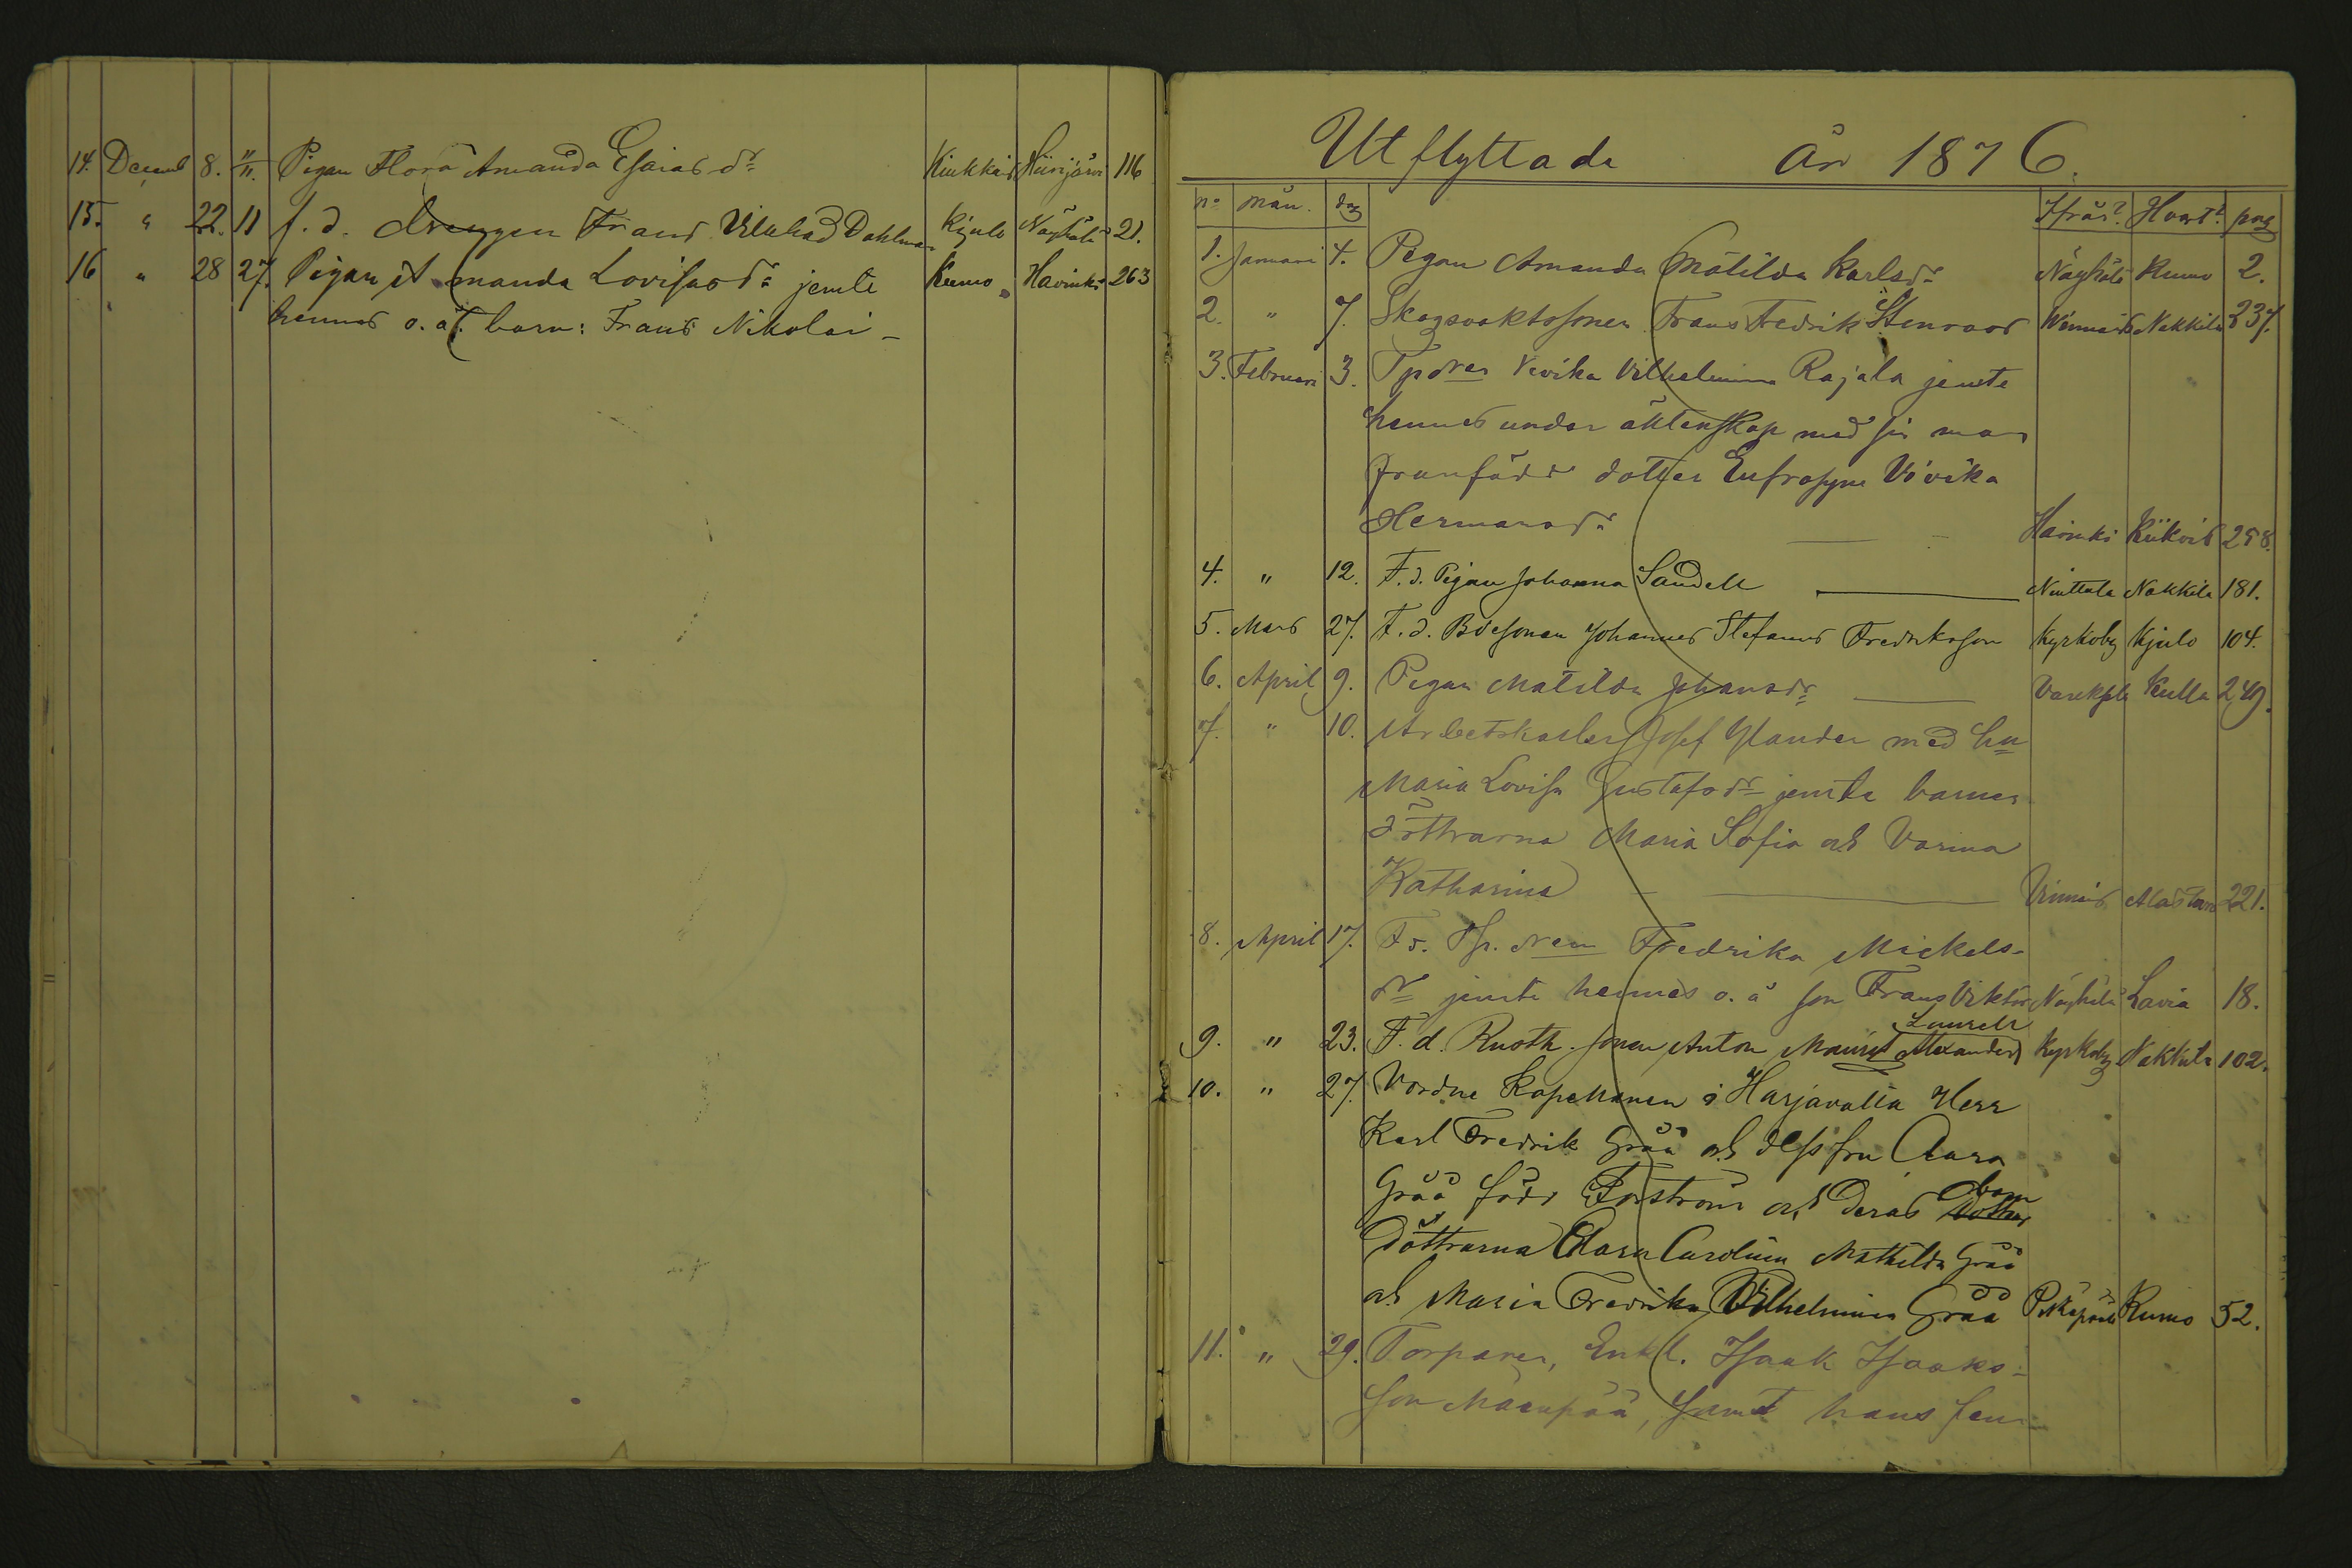 14. Decemb 8. 11. Pigan Flora Amanda Esaias dr Kiukkais Hiirijärvi 116
15. " 22. 11 f. d. drengen Frans Vilehad Dahlman Kjulo Näyhälä 21.
16 " 28 27. Pigan Amanda Lovisasdr jemte Kumo Havinki 263
hennes o. ä. barn: Frans Nikolai –
Utflyttade År 1876.
no mån. dag Ifrån? Hvart? pag
1. Januari 4. Pigan Amanda Matilda Karlsdr Näyhälä Kumo 2.
2. " 7. Skogsvaktssonen Frans Fredrik Stenroos Vinnais Nakkila 237.
3. Februari 3. Vivika Vilhelmina Rajala jemte
hennes under äktenskap med sin man
framfödd dotter Eufrosyne Vivika
Hermansdr Havinki Kiikois 258.
4. " 12. F. d. Pigan Johanna Sandell Niuttula Nakkila 181.
5. Mars 27. F. d. Bdesonen Johannes Stefanus Fredriksson Kyrkoby Kjulo 104.
6. April 9. Pigan Matilda Johansdr Kulla 249.
7. " 10. Arbetskarlen Josef Ylander med hu
Maria Lovisa Gustafsdr jemte barnen
döttrarna Maria Sofia och Varma
Katharina Vinnais Alastaro 221.
8. April 17. Fredrika Mickels-
dr jemte hennes o. ä son Frans Viktor Näyhälä Lavia 18.
Laurell
9. " 23. F. d. Rusth. sonen Anton Maurits Alexander Kyrkoby Nakkila 102.
10. " 27. Vordne Kapellanen i Harjavalta Herr
Karl Fredrik Gråå och dess fru Clara
Gråå född Forström och deras barn
Döttrarna Clara Carolina Mathilda Gråå
och Maria Fredrika Vilhelmina Gråå Pirkäpää Kumo 52.
11. " 29. Torparen, Enkl. Isaak Isaks-
son Mäenpää, samt hans